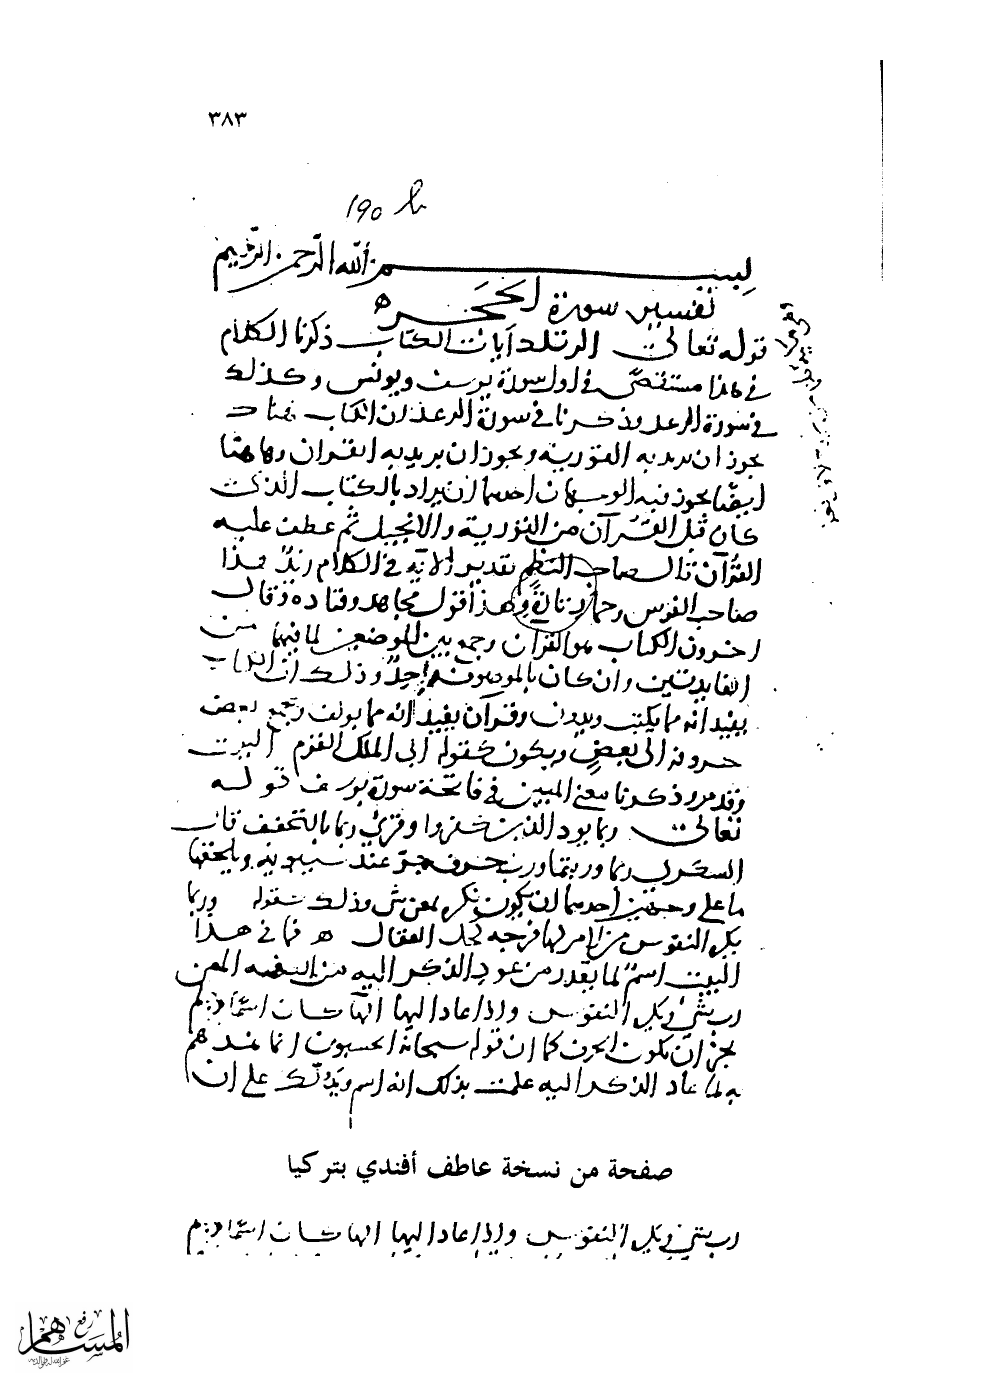 ٣٨٣
190
بسم الله الرحمن الرحيم
تفسير سورة الحجر
قوله تعالى الر تلك آيات الكتاب ذكرنا الكلام
في هذا مستقصى في اول سورة يوسف ويونس وكذلك
في سورة الرعد وذكرنا في سورة الرعد ان الكتاب هناك
يجوز ان يريد به التورية ويجوز ان يريد به القران وهاهنا
ايضا يجوز فيه الوجهان احدهما ان يراد بالكتاب الذي
كان قبل القرآن من التورية والانجيل ثم عطف عليه
القرآن قال صاحب النظم تقدير الآية في الكلام
صاحب الفرس وحمار وهذا قول مجاهد وقتادة وقال
اخرون الكتاب هو القران وجمع بين الموضعين لما فيهما من
الفايدتين وان كان الموصوف واحدًا وذلك ان الكتاب
يفيد انه مما يكتب ويدون وقرآن يفيد انه مما يولف ويجمع بعض
حروفه الى بعض ويكون كقوله الى الملك القرم البيت
وقد مر وذكرنا معنى المبين في فاتحة سورة يوسف قوله
تعالى ربما يود الذين كفروا وقرئ ربما بالتخفيف قال
السكري ربما وربتما ورب حرف جر عند سيبويه ويلحقها
ما على وجهين احدهما ان يكون نكرة بمعنى شي وذلك كقوله وربما
تكره النفوس من الامر لها فرجه كحل العقال ه فما في هذا
البيت اسم لما يقدر من عود الذكر اليه من الصفه المعنى
رب شيء تكره النفوس واذا عاد اليها الهاء كان اسمًا ولم
يجز ان يكون الحرف كما ان قوله سبحانه ايحسبون انما نمدهم
به لما عاد الذكر اليه علمت بذلك انه اسم ويدلك على ان
صفحة من نسخة عاطف أفندي بتركيا
رب شيء تكره النفوس واذا عاد اليها الهاء كان اسمًا ولم
رفع
المساهم